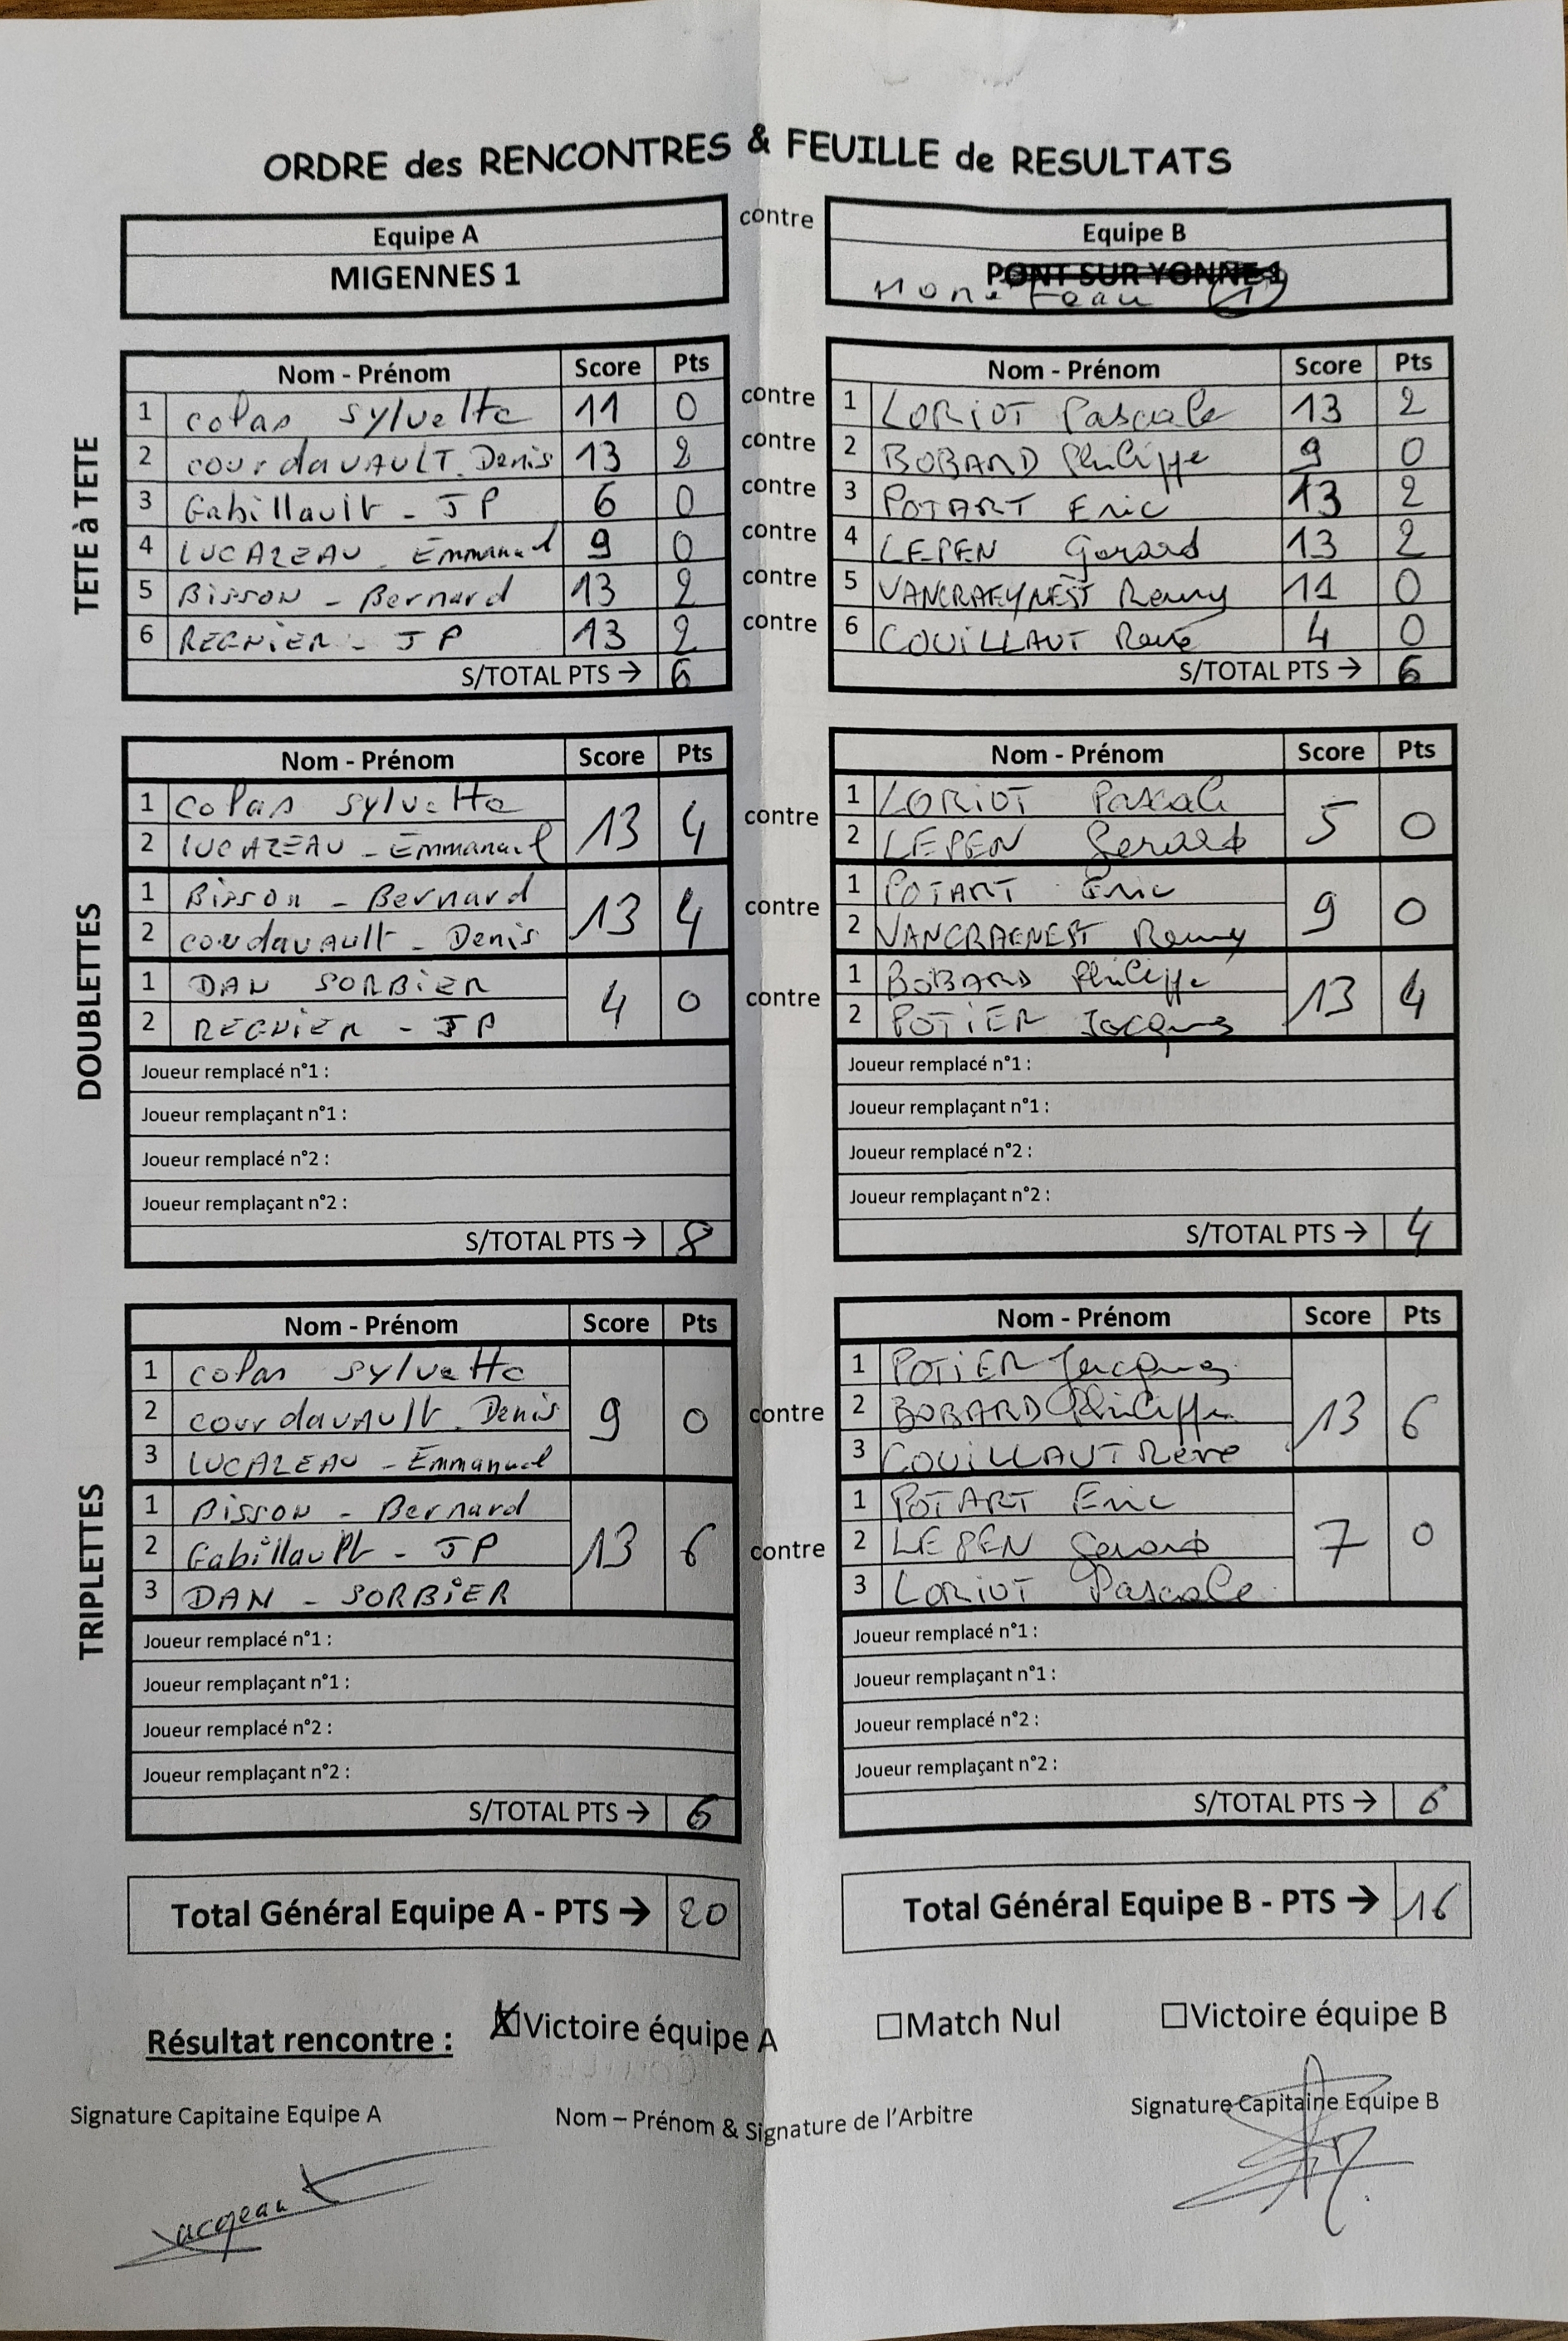 ORDRE des RENCONTRES & FEUILLE de RESULTATS
Equipe A contre Equipe B
MIGENNES 1 PONT SUR YONNE 1
Moneteau 1
TETE à TETE
Nom - Prénom Score Pts Nom - Prénom Score Pts
1 Colas Sylvette 11 0 contre 1 LORIOT Pascale 13 2
2 courdavAULT. Denis 13 2 contre 2 BOBARD Philippe 9 0
3 Gabillault - JP 6 0 contre 3 POTART Eric 13 2
4 LUCAZEAU - Emmanuel 9 0 contre 4 LEPEN Gerard 13 2
5 Bisson - Bernard 13 2 contre 5 VANCRAEYNEST Remy 11 0
6 REGNIER - JP 13 2 contre 6 COUILLAUT René 4 0
S/TOTAL PTS → 6 S/TOTAL PTS → 6
DOUBLETTES
Nom - Prénom Score Pts Nom - Prénom Score Pts
1 Colas Sylvette 13 4 contre 1 LORIOT Pascale 5 0
2 LUCAZEAU - Emmanuel 2 LEPEN Gerard
1 Bisson - Bernard 13 4 contre 1 POTART Eric 9 0
2 courdavAult - Denis 2 VANCRAENEST Remy
1 DAN SORBIER 4 0 contre 1 BOBARD Philippe 13 4
2 REGNIER - JP 2 POTIER Jacques
Joueur remplacé n°1 : Joueur remplacé n°1 :
Joueur remplaçant n°1 : Joueur remplaçant n°1 :
Joueur remplacé n°2 : Joueur remplacé n°2 :
Joueur remplaçant n°2 : Joueur remplaçant n°2 :
S/TOTAL PTS → 8 S/TOTAL PTS → 4
TRIPLETTES
Nom - Prénom Score Pts Nom - Prénom Score Pts
1 Colas Sylvette 1 POTIER Jacques
2 courdavAult. Denis 9 0 contre 2 BOBARD Philippe 13 6
3 LUCAZEAU - Emmanuel 3 COUILLAUT René
1 Bisson - Bernard 1 POTART Eric
2 Gabillault - JP 13 6 contre 2 LE PEN Gerard 7 0
3 DAN - SORBIER 3 LORIOT Pascale
Joueur remplacé n°1 : Joueur remplacé n°1 :
Joueur remplaçant n°1 : Joueur remplaçant n°1 :
Joueur remplacé n°2 : Joueur remplacé n°2 :
Joueur remplaçant n°2 : Joueur remplaçant n°2 :
S/TOTAL PTS → 6 S/TOTAL PTS → 6
Total Général Equipe A - PTS → 20 Total Général Equipe B - PTS → 16
Résultat rencontre : ☒Victoire équipe A ☐Match Nul ☐Victoire équipe B
Signature Capitaine Equipe A Nom – Prénom & Signature de l'Arbitre Signature Capitaine Equipe B